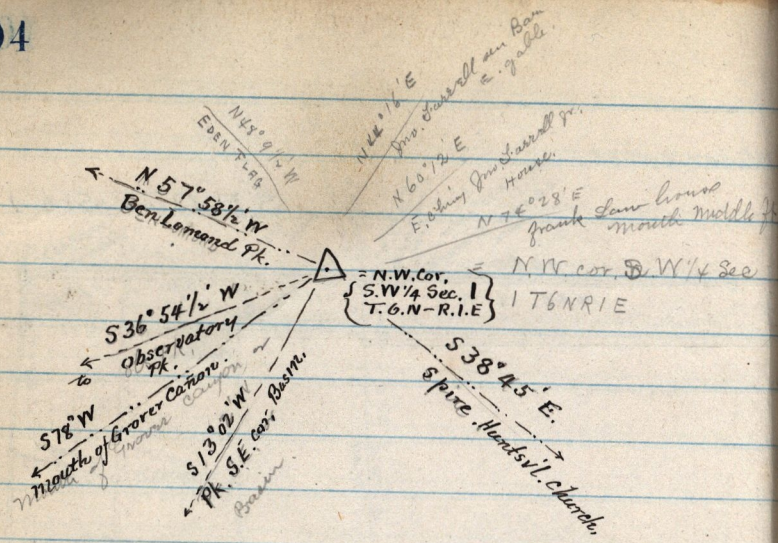 04
N 44° 16' E
Jno. Farrell sen Barn
E. gable.
N 48° 9 1/2' W
EDEN FLAG
N 60° 12' E
E. Chiny Jno Farrell Jr.
House.
N 74° 28' E
frank Law house
Mouth Middle
N 57° 58 1/2' W
Ben Lomond Pk.
= N.W. Cor.
S.W 1/4 Sec. 1
T.6.N-R.1.E
= N.W. cor. S W 1/4 Sec
1 T6NR1E
S 36° 54 1/2' W
to Observatory
Pk.
S 78° W
Mouth of Grover Cañon.
Mouth of Grover Canyon or
S 13° 02' W
Pk. S.E. cor. Basin.
Basin
S 38° 45' E.
Spire Huntsvl. Church.